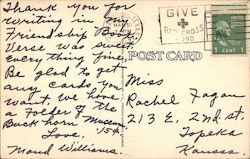 Thank you for
writing in my
Friendship Book
Verse was sweet
everything fine.
Be glad to get
any cards you
want, we have
a Folder of the
Buck horn Museum
15¢
Love,
Maud Williams.
GIVE
RED CROSS
FUND
1 CENT 1
POST CARD
Miss
Rachel Fagan
213 E. 2nd st.
Topeka
Kansas.